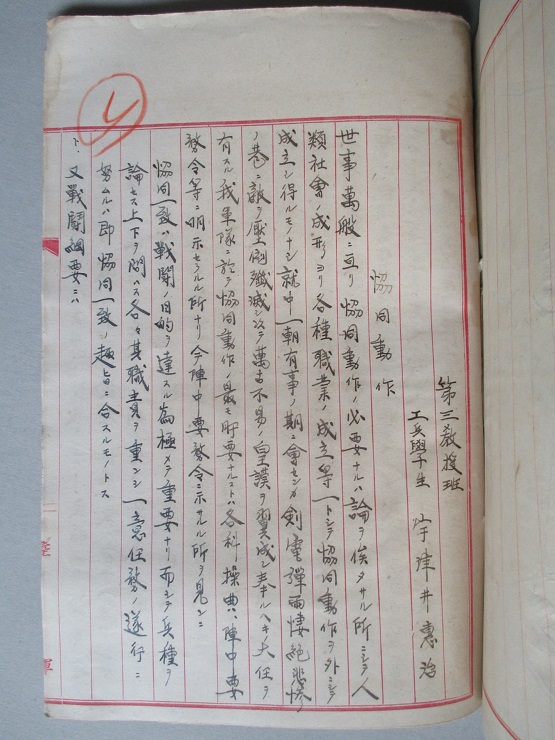 第三教授班
工兵學生 宇津井惠治
協同動作
世事萬般ニ亘リ協同動作ノ必要ナルハ論ヲ俟タサル所ニシテ人
類社會ノ成形ヨリ各種職業ノ成立等一トシテ協同動作ヲ外ニシテ
成立シ得ルモノナシ就中一朝有事ノ期ニ會センカ剣電彈雨悽絶悲惨
ノ巷ニ敵ヲ壓倒殲滅シ以テ萬古不易ノ皇謨ヲ翼成シ奉ルヘキ大任ヲ
有スル我軍隊ニ於テ協同動作ノ最モ肝要ナルコトハ各科操典、陣中要
務令等ニ明示セラルル所ナリ今陣中要務令ニ示サルル所ヲ見ンニ
協同一致ハ戰鬪ノ目的ヲ達スル爲極メテ重要ナリ而シテ兵種ヲ
論セス上下ヲ問ハス各々其職責ヲ重ンシ一意任務ノ遂行ニ
努ムルハ即協同一致ノ趣旨ニ合スルモノトス
ト、又戰鬪綱要ニハ